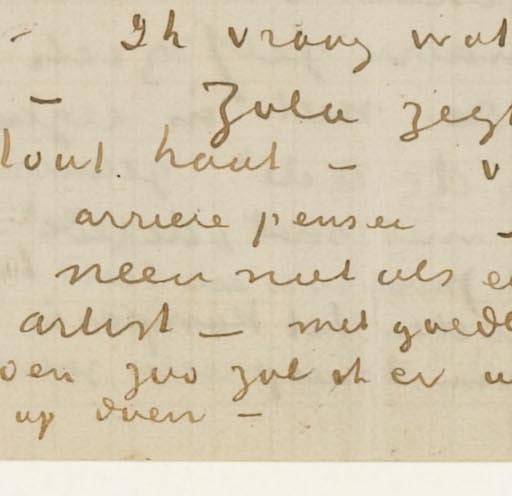 - Ik vraag wat
- Zola zegt
tout haut -
arriere pensee -
neen niet als
artist - met goede
oen zoo zal ik er
op doen -